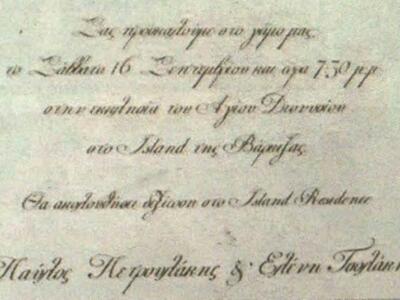 Σας προσκαλούμε στο γάμο μας
το Σάββατο 16 Σεπτεμβρίου και ώρα 7:30 μ.μ
στην εκκλησία του Αγίου Διονυσίου
στο Island της Βάρκιζας.
Θα ακολουθήσει δεξίωση στο Island Residence
Παύλος Πετρουλάκης & Ελένη